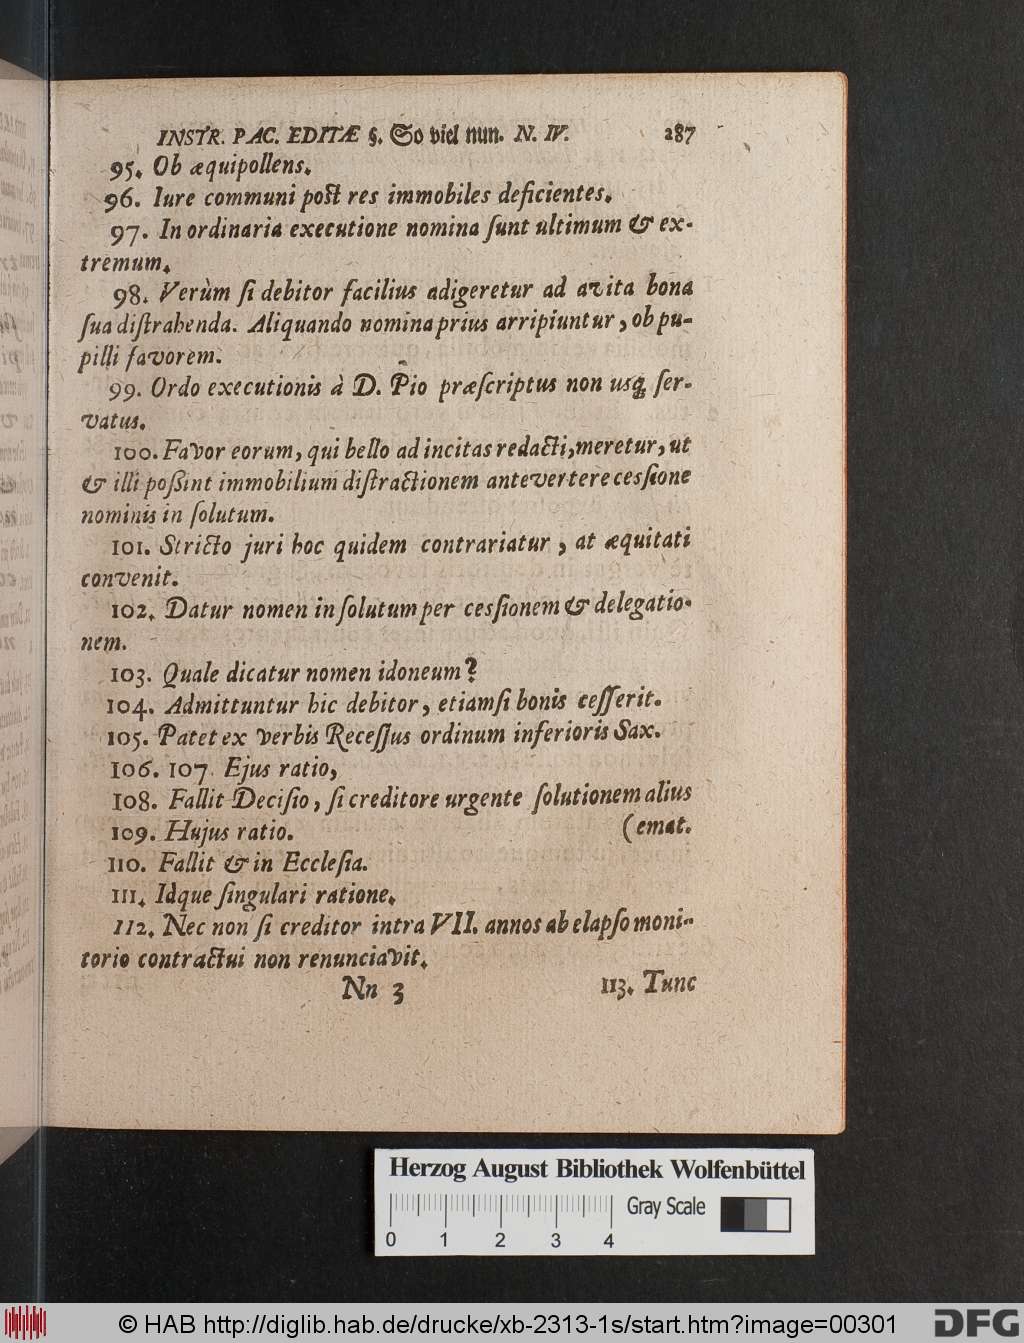 INSTR. PAC. EDITÆ §. So viel nun. N. IV. 287
95. Ob æquipollens.
96. Iure communi post res immobiles deficientes.
97. In ordinaria executione nomina ſunt ultimum & ex-
tremum.
98. Verùm ſi debitor facilius adigeretur ad avita bona
ſua diſtrahenda. Aliquando nomina prius arripiuntur, ob pu-
pilli favorem.
99. Ordo executionis à D. Pio præſcriptus non usq; ſer-
vatus.
100. Favor eorum, qui bello ad incitas redacti, meretur, ut
& illi poßint immobilium diſtractionem antevertere ceſſione
nominis in ſolutum.
101. Stricto juri hoc quidem contrariatur, at æquitati
convenit.
102. Datur nomen in ſolutum per cesſionem & delegatio-
nem.
103. Quale dicatur nomen idoneum?
104. Admittuntur hic debitor, etiamſi bonis ceſſerit.
105. Patet ex verbis Receſſus ordinum inferioris Sax.
106. 107. Ejus ratio,
108. Fallit Deciſio, ſi creditore urgente ſolutionem alius
109. Hujus ratio. (emat.
110. Fallit & in Eccleſia.
111. Idque ſingulari ratione.
112. Nec non ſi creditor intra VII. annos ab elapſo moni-
torio contractui non renunciavit.
Nn 3 113. Tunc
Herzog August Bibliothek Wolfenbüttel
Gray Scale
0 1 2 3 4
© HAB http://diglib.hab.de/drucke/xb-2313-1s/start.htm?image=00301
DFG